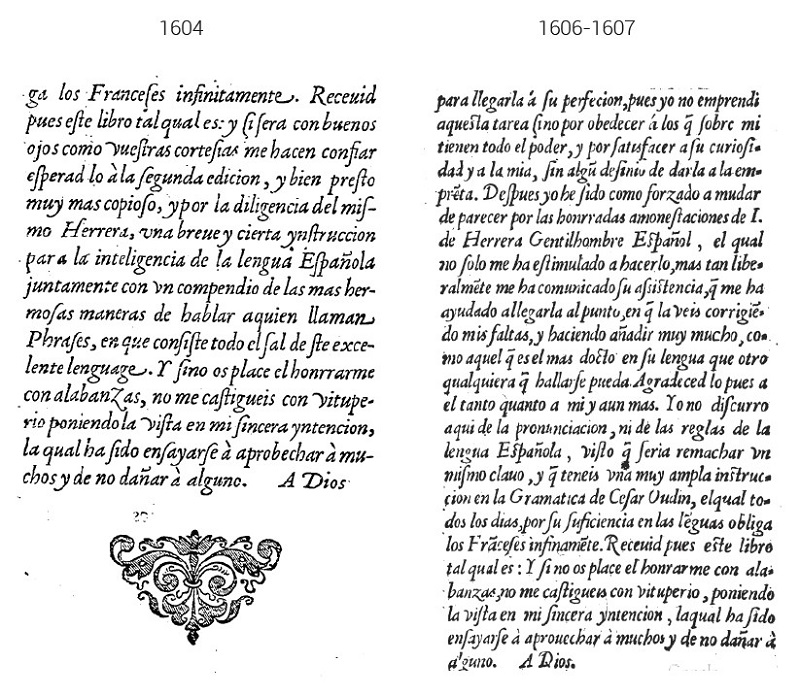 1604
ga los Franceſes infinitamente. Receuid
pues eſte libro tal qual es: y ſi ſera con buenos
ojos como vueſtras corteſias me hacen confiar
eſperad lo à la ſegunda edicion, y bien preſto
muy mas copioſo, y por la diligencia del miſ-
mo Herrera, vna breue y cierta ynſtruccion
para la inteligencia de la lengua Eſpañola
juntamente con vn compendio de las mas her-
moſas maneras de hablar aquien llaman
Phraſes, en que conſiſte todo el ſal de ſte exce-
lente lenguage. Y ſino os place el honrrarme
con alabanzas, no me caſtigueis con vitupe-
rio poniendo la viſta en mi ſincera yntencion,
la qual ha ſido enſayarſe à aprobechar à mu-
chos y de no dañar à alguno. A Dios
1606-1607
para llegarla á ſu perfecion, pues yo no emprendi
aqueſta tarea ſino por obedecer á los q̃ ſobre mi
tienen todo el poder, y por ſatuſfacer a ſu curioſi-
dad y a la mia, ſin algũ deſinio de darla a la em-
prẽta. Deſpues yo he ſido como forzado a mudar
de parecer por las honrradas amoneſtaciones de I.
de Herrera Gentilhombre Eſpañol, el qual
no ſolo me ha eſtimulado a hacerlo, mas tan libe-
ralmẽte me ha comunicado ſu aſsiſtencia, q̃ me ha
ayudado allegarla al punto, en q̃ la veis corrigiẽ-
do mis faltas, y haciendo añadir muy mucho, co-
mo aquel q̃ es el mas docto en ſu lengua que otro
qualquiera q̃ hallarſe pueda. Agradeced lo pues a
el tanto quanto a mi y aun mas. Yo no diſcurro
aqui de la pronunciacion, ni de las reglas de la
lengua Eſpañola, viſto q̃ ſeria remachar vn
miſmo clauo, y q̃ teneis vna muy ampla inſtruc-
cion en la Gramatica de Ceſar Oudin, el qual to-
dos los dias, por ſu ſuficiencia en las lẽguas obliga
los Frãceſes infinamẽte. Receuid pues eſte libro
tal qual es: Y ſi no os place el honrarme con ala-
banzas, no me caſtigueis con vituperio, poniendo
la viſta en mi ſincera yntencion, laqual ha ſido
enſayarſe à aprouechar à muchos y de no dañar à
alguno. A Dios.